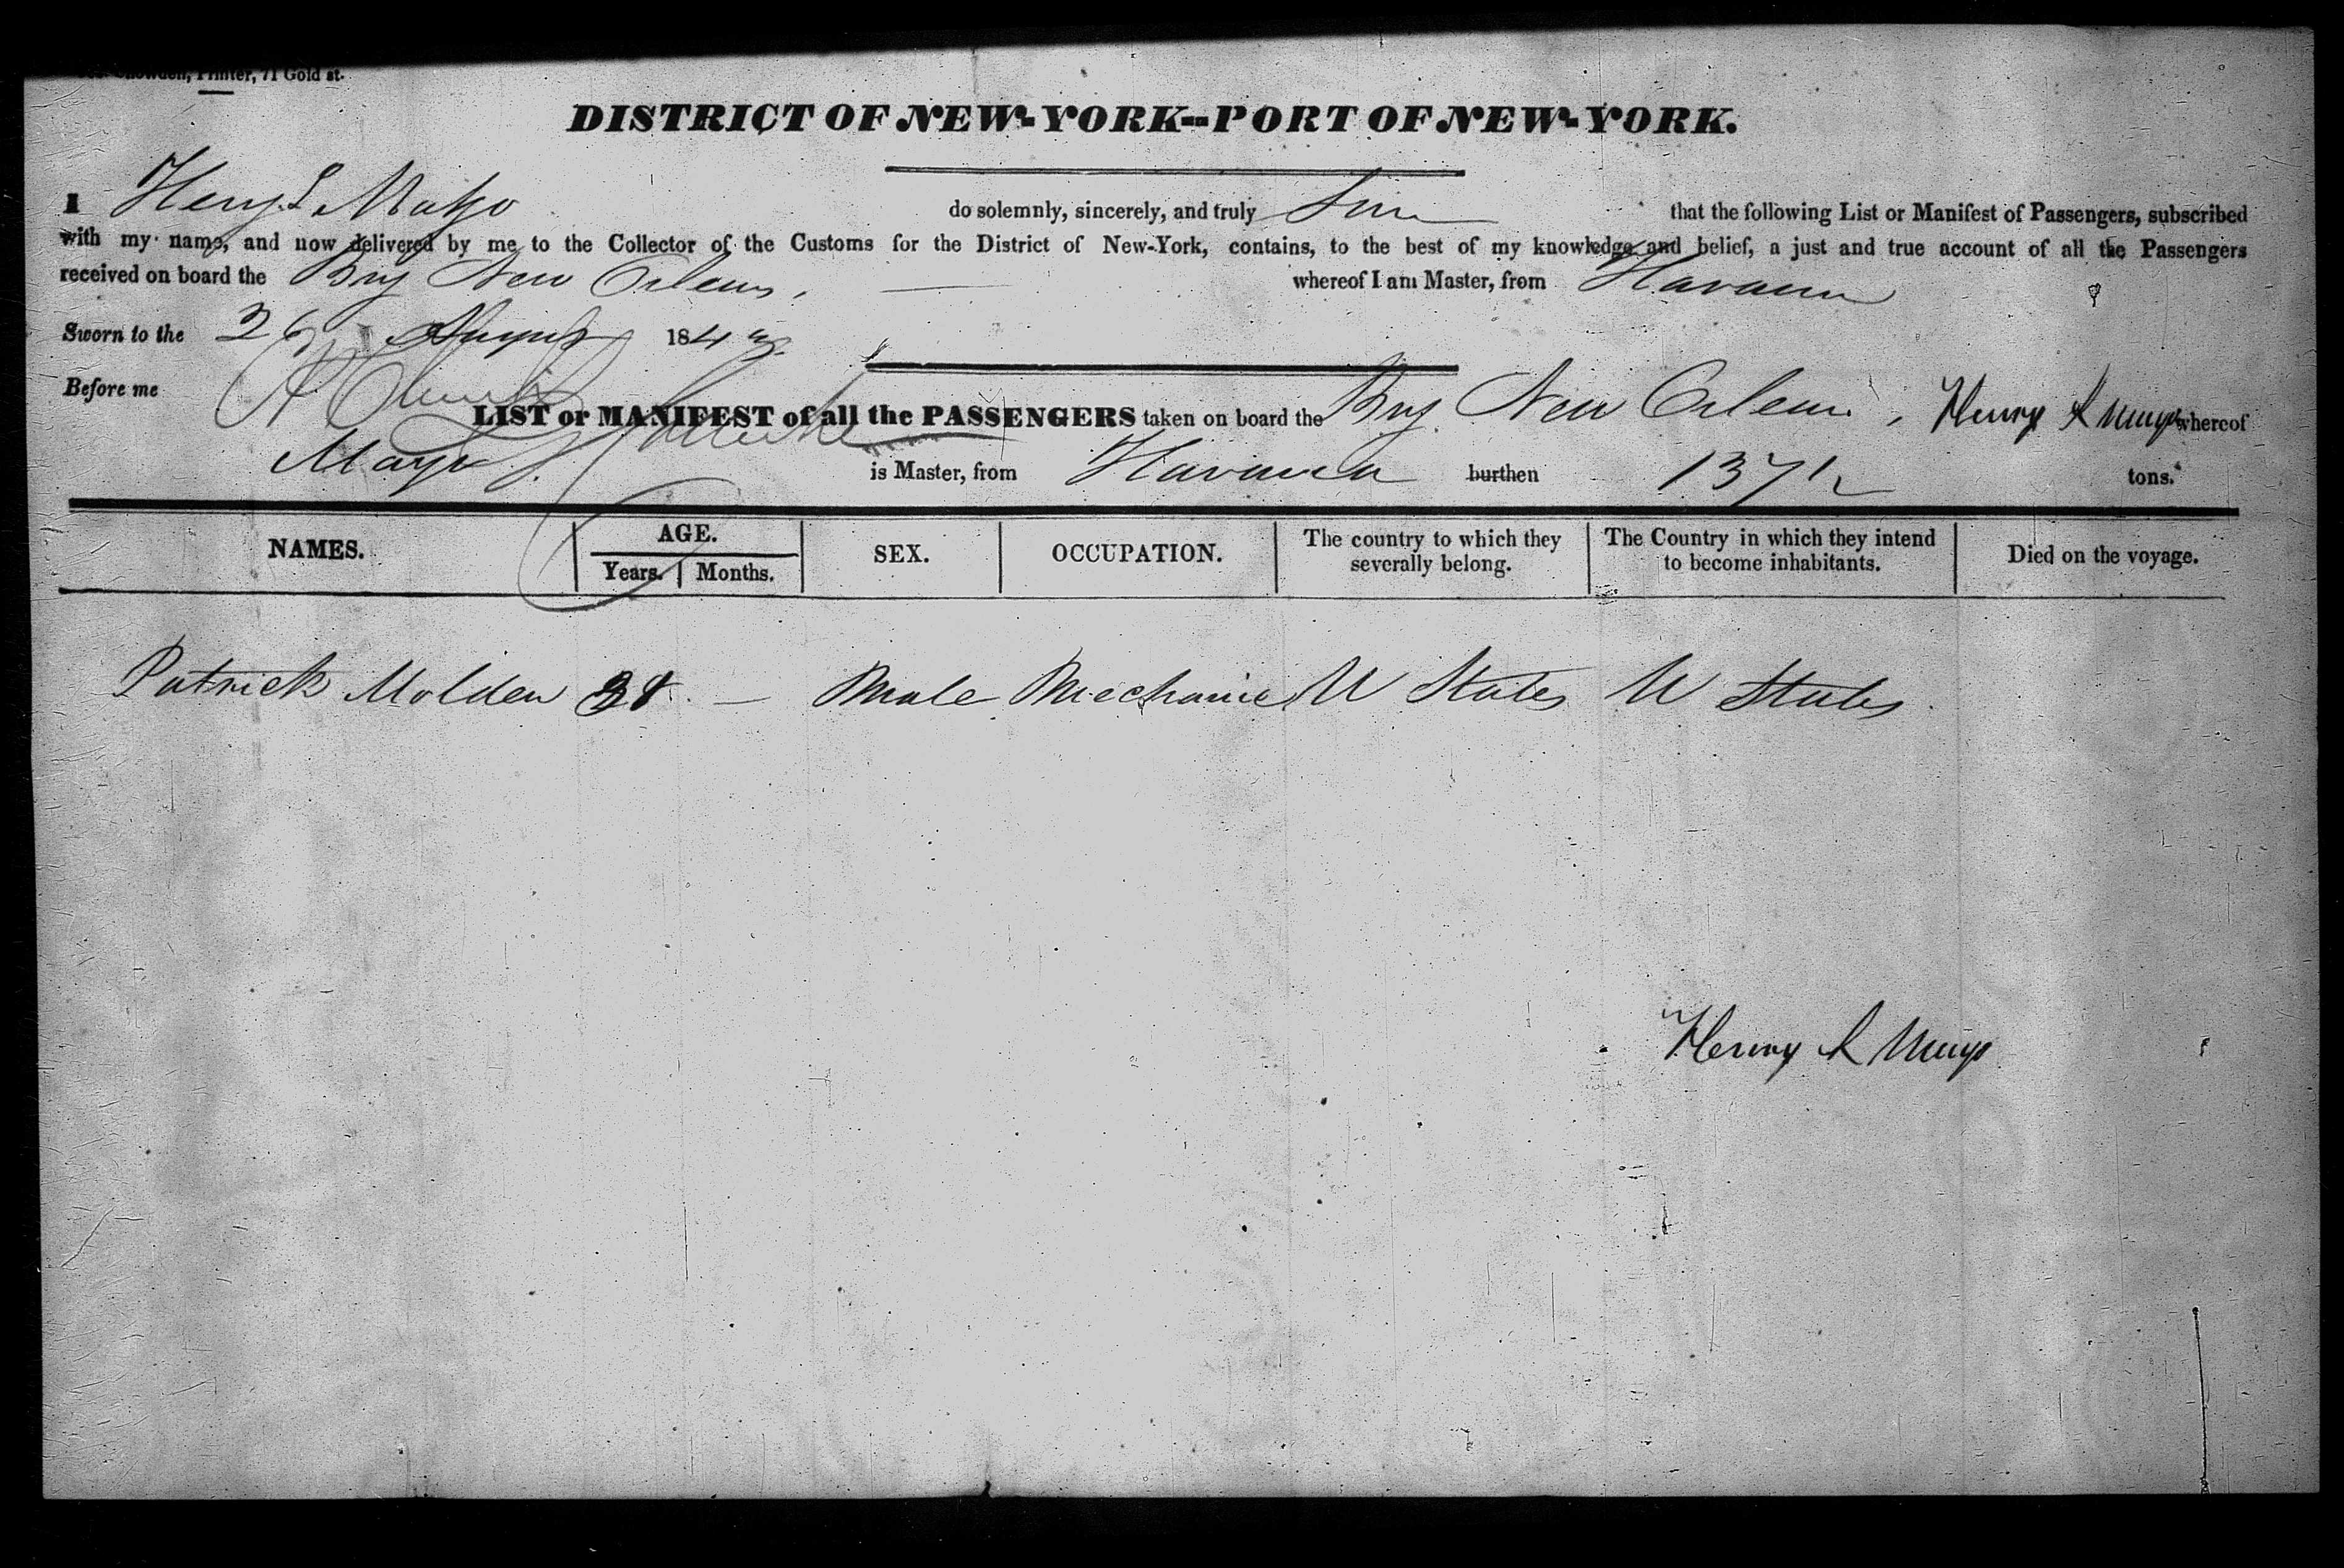 Snowden, Printer, 71 Gold st.
DISTRICT OF NEW-YORK--PORT OF NEW-YORK.
I Henry S do solemnly, sincerely, and truly that the following List or Manifest of Passengers, subscribed
with my name, and now delivered by me to the Collector of the Customs for the District of New-York, contains, to the best of my knowledge and belief, a just and true account of all the Passengers
received on board the Brig New Orleans, whereof I am Master, from Havana
Sworn to the 26 August 1843
Before me
LIST or MANIFEST of all the PASSENGERS taken on board the Brig New Orleans, Henry whereof
is Master, from Havana burthen 137 1/2 tons.
NAMES. AGE. SEX. OCCUPATION. The country to which they severally belong. The Country in which they intend to become inhabitants. Died on the voyage.
Years. Months.
Patrick Molden — Male Mechanic U States U States
Henry